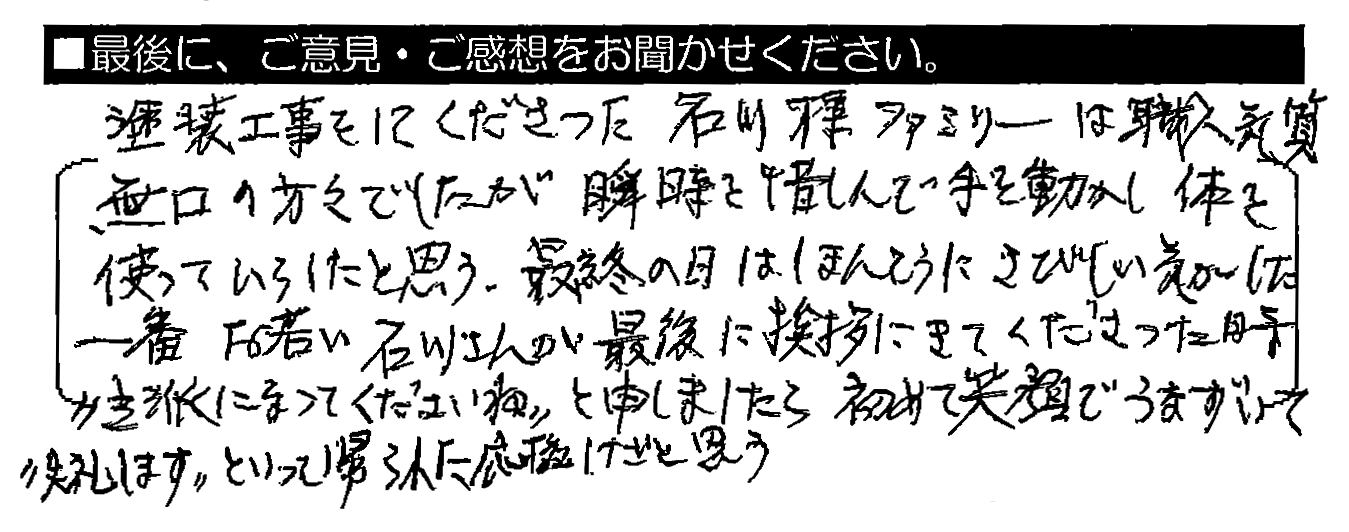 ■最後に、ご意見・ご感想をお聞かせください。
塗装工事をしてくださった 石川様ファミリーは職人気質
無口の方々でしたが 瞬時を惜しんで手を動かし 体を
使っていらしたと思う。最終の日はほんとうにさびしい気がした
一番お若い石川さんが最後に挨拶にきてくださった時
〃立派になってくださいね〃と申しましたら 初めて笑顔で
〃失礼します〃といって帰られた 思う